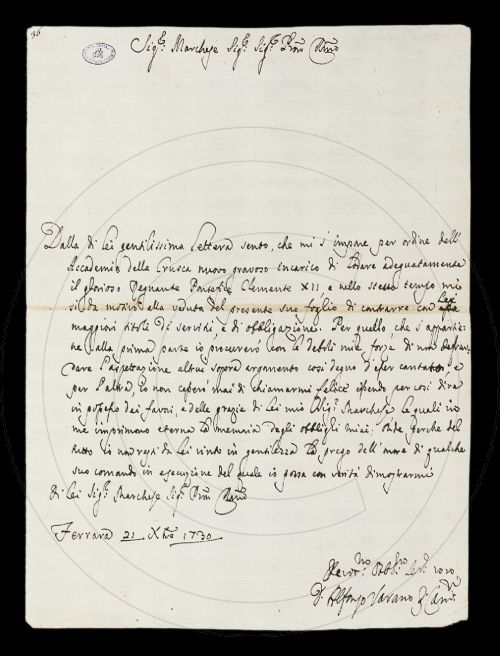 36
Sig.r Marchese Sig.r Sig.r P.ron Col.mo
Dalla di Lei gentilissima lettera sento, che mi s'impone per ordine dell'
Accademia della Crusca nuovo gravoso incarico di lodare adeguatamente
il glorioso Regnante Pontefice Clemente XII e nello stesso tempo mi
si da motivo alla veduta del presente suo foglio di contrarre con Lei
maggiori titoli di servitù, e di obbligazione. Per quello, che s'appartie
ne alla prima parte io procurerò con le deboli mie forze di non defrau
dare l'aspettazione altrui sopra argomento così degno d'esser cantato; e
per l'altra, io non cesserò mai di chiamarmi felice essendo per così dire
in possesso dei favori, e delle grazie di Lei mio Sig.r Marchese le quali in
me imprimono eterna la memoria degli obblighi miei. Onde perche del
tutto io non resti da Lei vinto in gentilezza La prego dell'onore di qualche
suo comando in esecuzione del quale io possa con verità dimostrarmi
di Lei Sig.r Marchese Sig.r P.ron Col.mo
Ferrara 21 Xbre 1730
Devot.mo Obb.mo Ser.
D. Alfonso Varano di Cam.